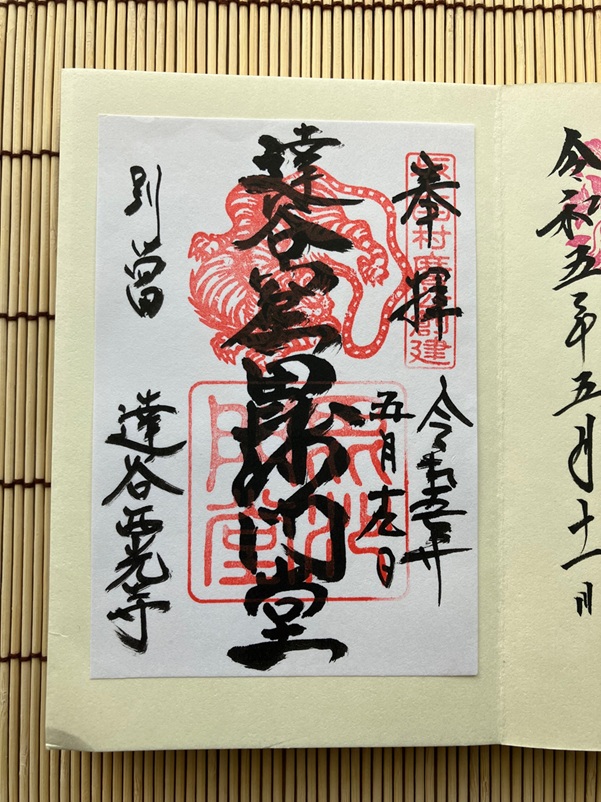 令和五年五月十一日
奉拝
令和五年
五月十九日
達谷窟毘沙門堂
別當
達谷西光寺
村
創建